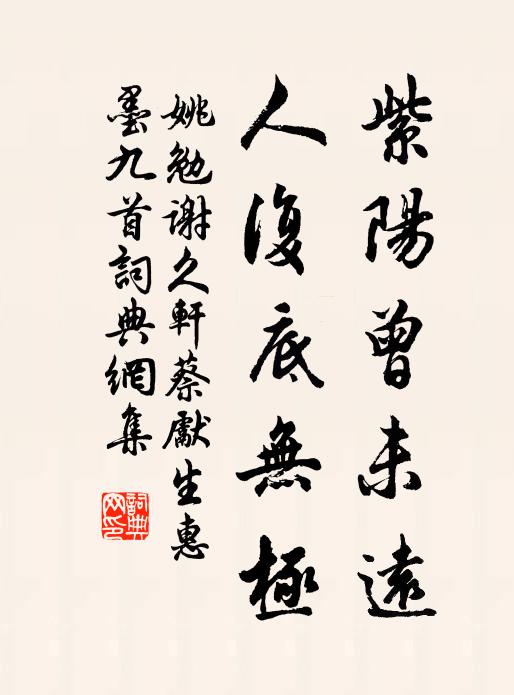 紫陽曾未遠
人復底無極
姚勉謝久軒蔡獻生惠
墨九首詞典網集
詞典網印